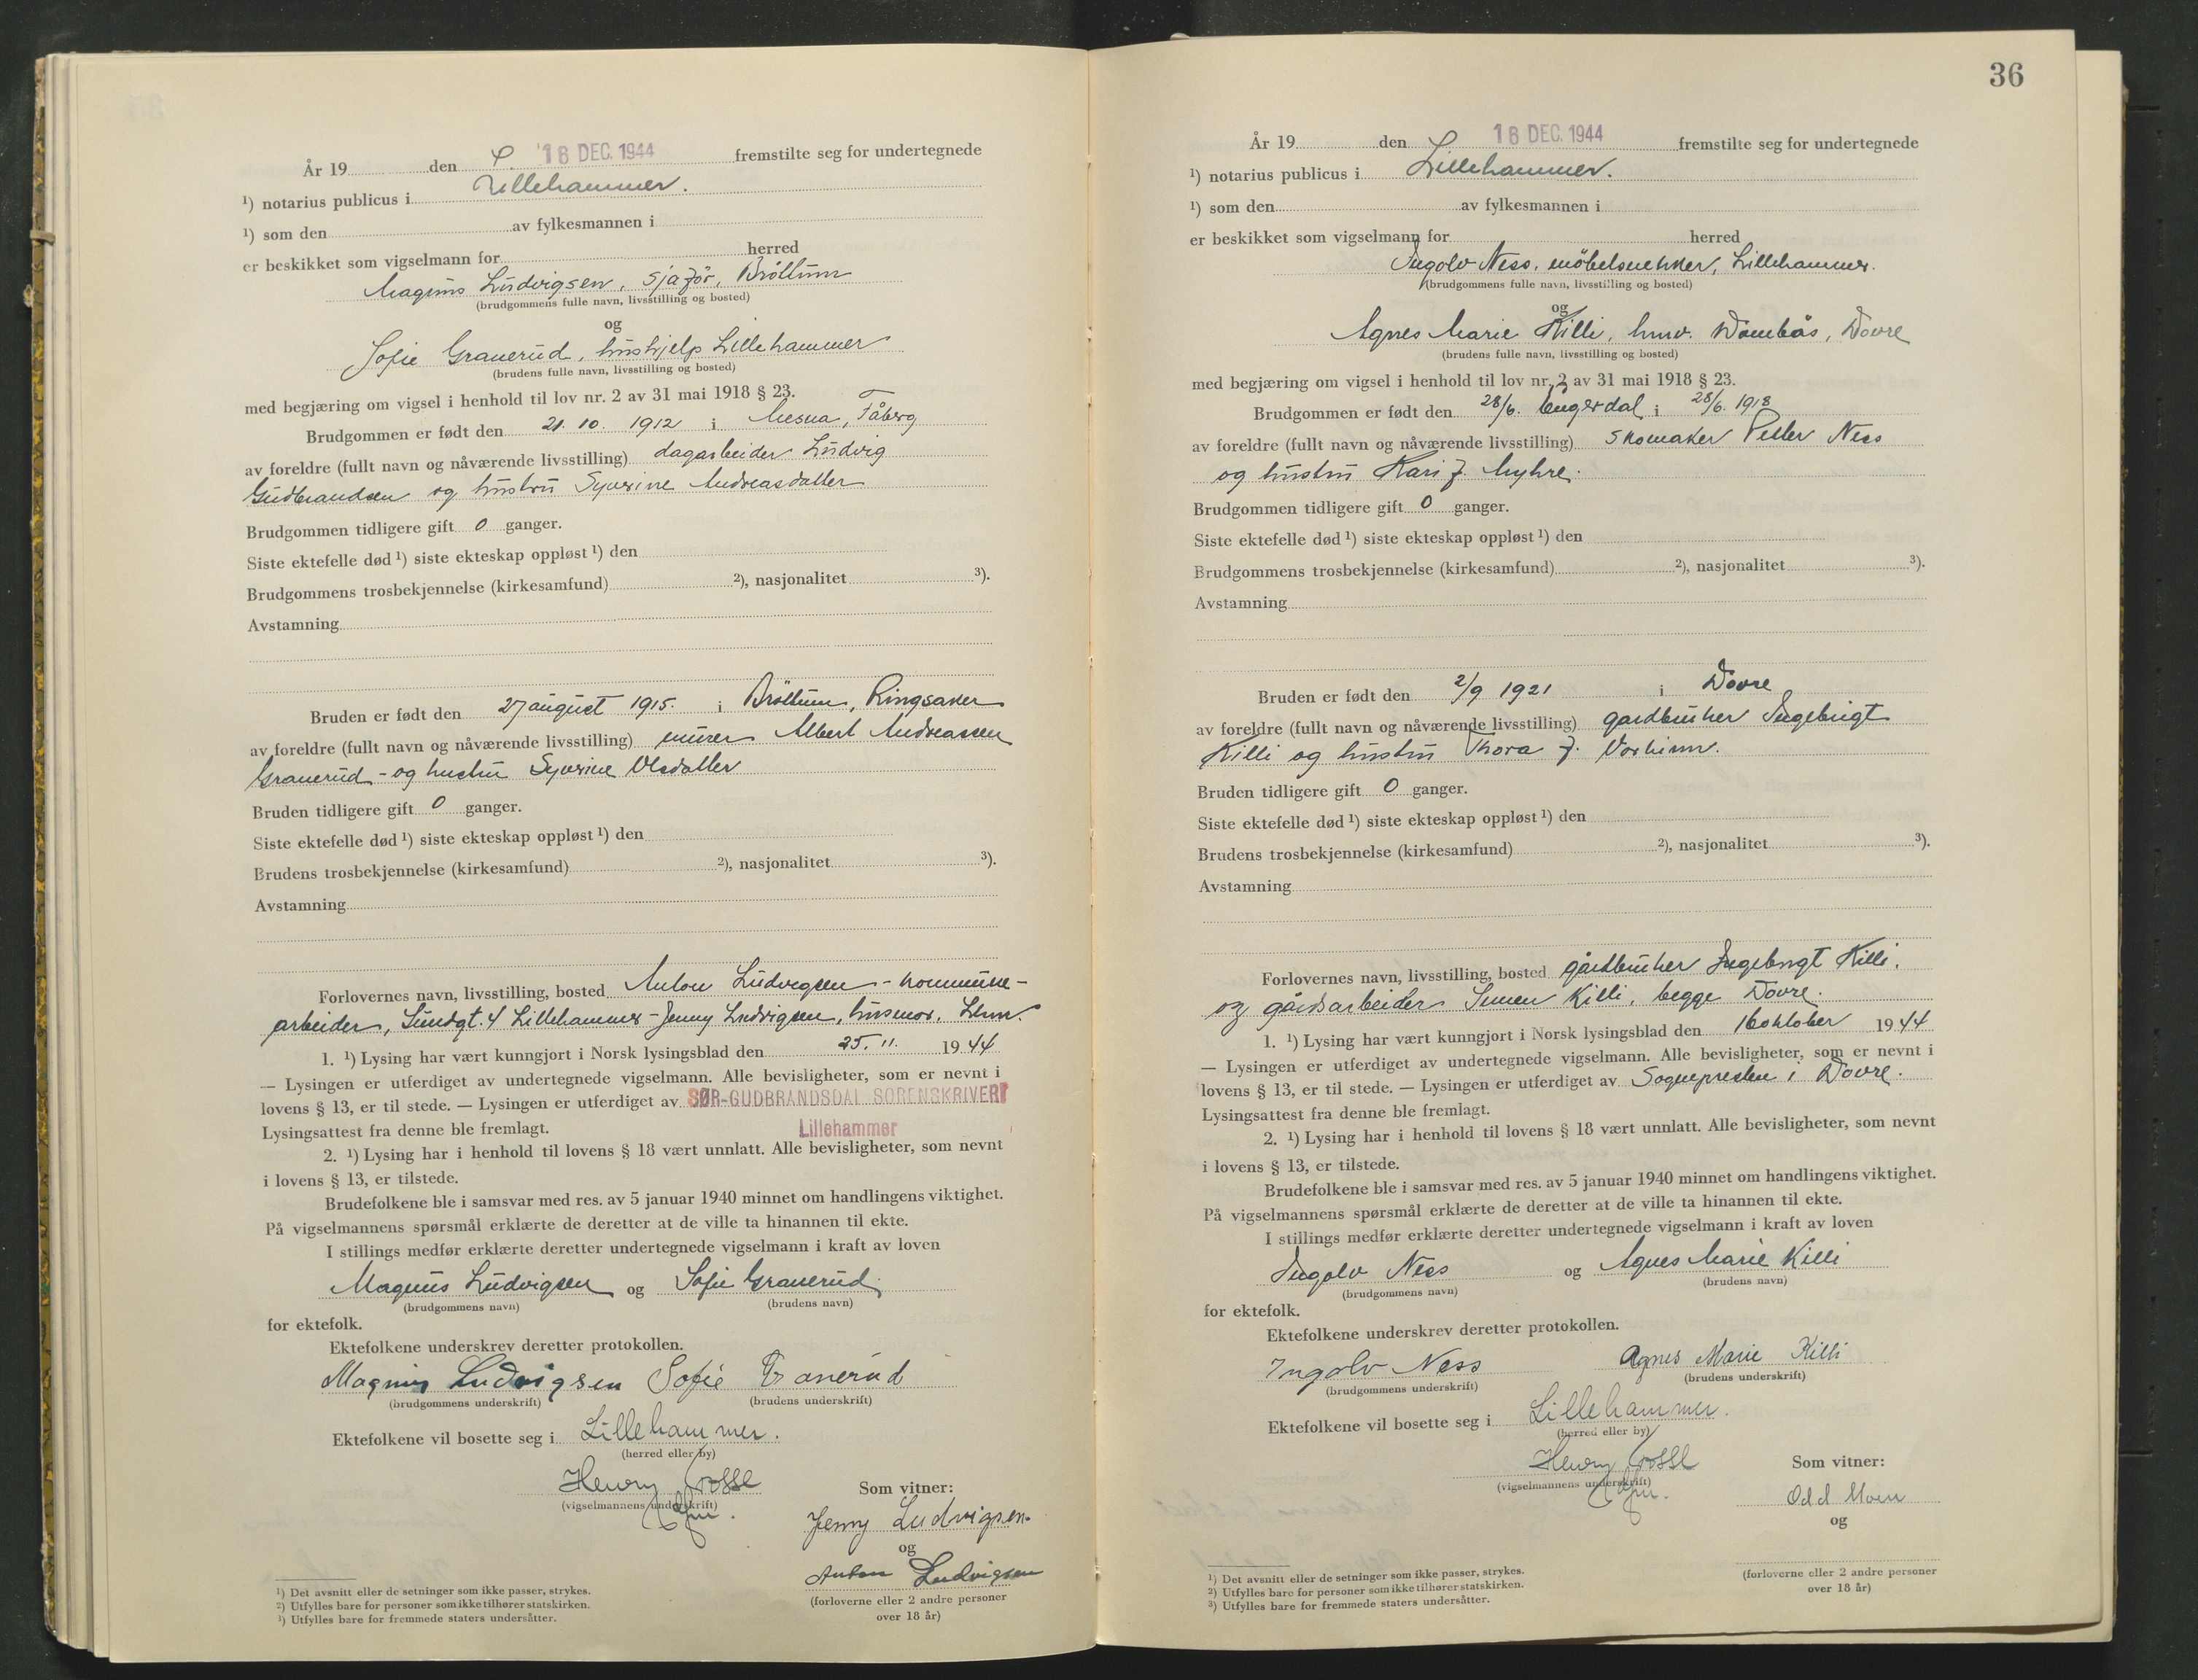 År 19 den 16 DEC. 1944 fremstilte seg for undertegnede
¹) notarius publicus i Lillehammer.
¹) som den av fylkesmannen i
er beskikket som vigselmann for herred
Magnus Ludvigsen, sjafør, Brøttum
(brudgommens fulle navn, livsstilling og bosted)
og
Sofie Granerud, hushjelp Lillehammer
(brudens fulle navn, livsstilling og bosted)
med begjæring om vigsel i henhold til lov nr. 2 av 31 mai 1918 § 23.
Brudgommen er født den 21. 10. 1912 i Mesna, Fåberg
av foreldre (fullt navn og nåværende livsstilling) dagarbeider Ludvig
Gudbrandsen og hustru Syverine Andreasdatter
Brudgommen tidligere gift 0 ganger.
Siste ektefelle død ¹) siste ekteskap oppløst ¹) den
Brudgommens trosbekjennelse (kirkesamfund) ²), nasjonalitet ³).
Avstamning
Bruden er født den 27 august 1915. i Brøttum, Ringsaker
av foreldre (fullt navn og nåværende livsstilling) murer Albert Andreassen
Granerud - og hustru Syverine Olsdatter
Bruden tidligere gift 0 ganger.
Siste ektefelle død ¹) siste ekteskap oppløst ¹) den
Brudens trosbekjennelse (kirkesamfund) ²), nasjonalitet ³).
Avstamning
Forlovernes navn, livsstilling, bosted Anton Ludvigsen - kommune-
arbeider, Sundgt. 4 Lillehammer - Jenny Ludvigsen, husmor. Lhmr
1. ¹) Lysing har vært kunngjort i Norsk lysingsblad den 25. 11. 1944
— Lysingen er utferdiget av undertegnede vigselmann. Alle bevisligheter, som er nevnt i
lovens § 13, er til stede. — Lysingen er utferdiget av SØR-GUDBRANDSDAL SORENSKRIVERI
Lysingsattest fra denne ble fremlagt. Lillehammer
2. ¹) Lysing har i henhold til lovens § 18 vært unnlatt. Alle bevisligheter, som nevnt
i lovens § 13, er tilstede.
Brudefolkene ble i samsvar med res. av 5 januar 1940 minnet om handlingens viktighet.
På vigselmannens spørsmål erklærte de deretter at de ville ta hinannen til ekte.
I stillings medfør erklærte deretter undertegnede vigselmann i kraft av loven
Magnus Ludvigsen og Sofie Granerud
(brudgommens navn) (brudens navn)
for ektefolk.
Ektefolkene underskrev deretter protokollen.
Magnus Ludvigsen Sofie Granerud
(brudgommens underskrift) (brudens underskrift)
Ektefolkene vil bosette seg i Lillehammer.
(herred eller by)
Henry
(vigselmannens underskrift)
Som vitner:
Jenny Ludvigsen
og
Anton Ludvigsen
(forloverne eller 2 andre personer
over 18 år)
¹) Det avsnitt eller de setninger som ikke passer, strykes.
²) Utfylles bare for personer som ikke tilhører statskirken.
³) Utfylles bare for fremmede staters undersåtter.
36
År 19 den 16 DEC. 1944 fremstilte seg for undertegnede
¹) notarius publicus i Lillehammer.
¹) som den av fylkesmannen i
er beskikket som vigselmann for herred
Ingolv Ness, møbelsnekker, Lillehammer.
(brudgommens fulle navn, livsstilling og bosted)
og
Agnes Marie Killi, hmv. Dombås, Dovre
(brudens fulle navn, livsstilling og bosted)
med begjæring om vigsel i henhold til lov nr. 2 av 31 mai 1918 § 23.
Brudgommen er født den 28/6. Engerdal i 28/6. 1918
av foreldre (fullt navn og nåværende livsstilling) skomaker Petter Ness
og hustru Kari f. Myhre.
Brudgommen tidligere gift 0 ganger.
Siste ektefelle død ¹) siste ekteskap oppløst ¹) den
Brudgommens trosbekjennelse (kirkesamfund) ²), nasjonalitet ³).
Avstamning
Bruden er født den 2/9 1921 i Dovre
av foreldre (fullt navn og nåværende livsstilling) gardbruker Ingebrigt
Killi og hustru Thora f. Vorkinn.
Bruden tidligere gift 0 ganger.
Siste ektefelle død ¹) siste ekteskap oppløst ¹) den
Brudens trosbekjennelse (kirkesamfund) ²), nasjonalitet ³).
Avstamning
Forlovernes navn, livsstilling, bosted gårdbruker Ingebrigt Killi.
og gårdsarbeider Simen Killi, begge Dovre.
1. ¹) Lysing har vært kunngjort i Norsk lysingsblad den 16 oktober 1944
— Lysingen er utferdiget av undertegnede vigselmann. Alle bevisligheter, som er nevnt i
lovens § 13, er til stede. — Lysingen er utferdiget av Sognepresten i Dovre.
Lysingsattest fra denne ble fremlagt.
2. ¹) Lysing har i henhold til lovens § 18 vært unnlatt. Alle bevisligheter, som nevnt
i lovens § 13, er tilstede.
Brudefolkene ble i samsvar med res. av 5 januar 1940 minnet om handlingens viktighet.
På vigselmannens spørsmål erklærte de deretter at de ville ta hinannen til ekte.
I stillings medfør erklærte deretter undertegnede vigselmann i kraft av loven
Ingolv Ness og Agnes Marie Killi
(brudgommens navn) (brudens navn)
for ektefolk.
Ektefolkene underskrev deretter protokollen.
Ingolv Ness Agnes Marie Killi
(brudgommens underskrift) (brudens underskrift)
Ektefolkene vil bosette seg i Lillehammer.
(herred eller by)
Henry
(vigselmannens underskrift)
Som vitner:
Odd Moen
og
(forloverne eller 2 andre personer
over 18 år)
¹) Det avsnitt eller de setninger som ikke passer, strykes.
²) Utfylles bare for personer som ikke tilhører statskirken.
³) Utfylles bare for fremmede staters undersåtter.